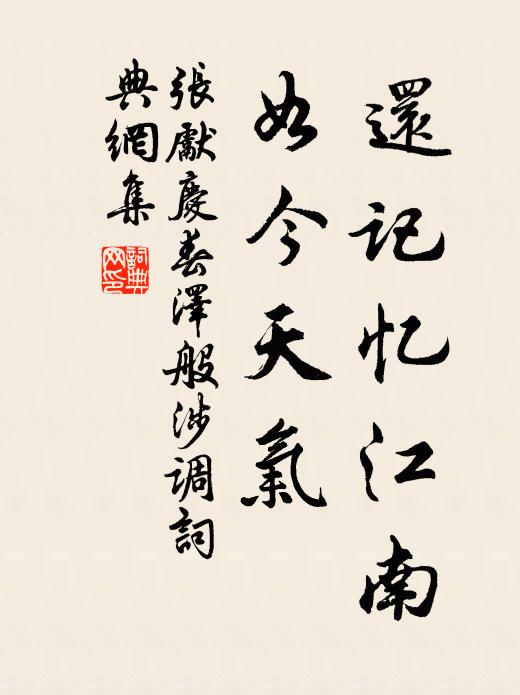 還记忆江南
如今天氣
張獻慶春澤般涉调詞
典網集
詞典
网印